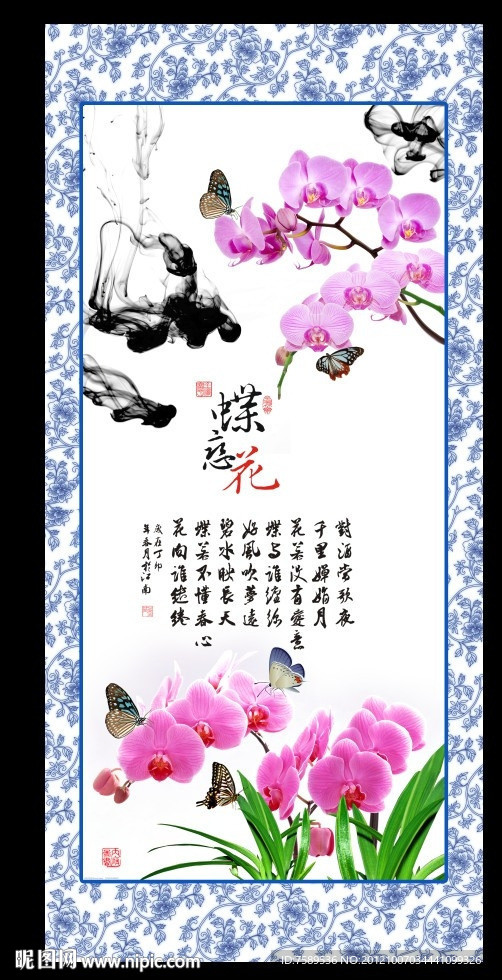 蝶
恋
花
对酒当歌夜
千里婵娟月
花若没有爱意
蝶与谁缠绵
好风吹梦远
碧水映长天
蝶若不懂春心
花向谁缱绻
岁在丁卯
年春月于江南
昵图网 www.nipic.com
ID:7589536 NO:20121007034441099326